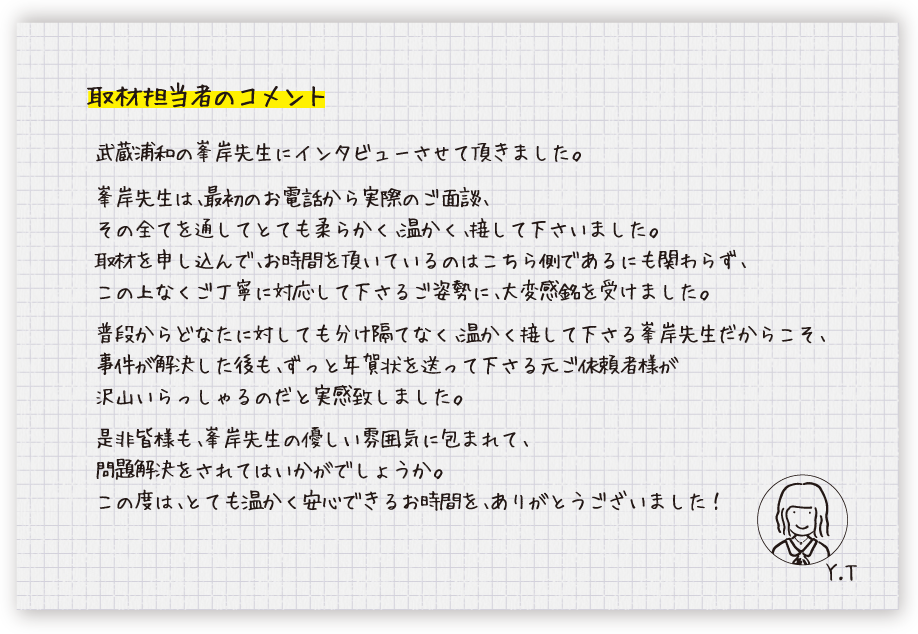 取材担当者のコメント
武蔵浦和の峯岸先生にインタビューさせて頂きました。
峯岸先生は、最初のお電話から実際のご面談、
その全てを通してとても柔らかく、温かく、接して下さいました。
取材を申し込んで、お時間を頂いているのはこちら側であるにも関わらず、
この上なくご丁寧に対応して下さるご姿勢に、大変感銘を受けました。
普段からどなたに対しても分け隔てなく、温かく接して下さる峯岸先生だからこそ、
事件が解決した後も、ずっと年賀状を送って下さる元ご依頼者様が
沢山いらっしゃるのだと実感致しました。
是非皆様も、峯岸先生の優しい雰囲気に包まれて、
問題解決をされてはいかがでしょうか。
この度は、とても温かく安心できるお時間を、ありがとうございました！
Y.T